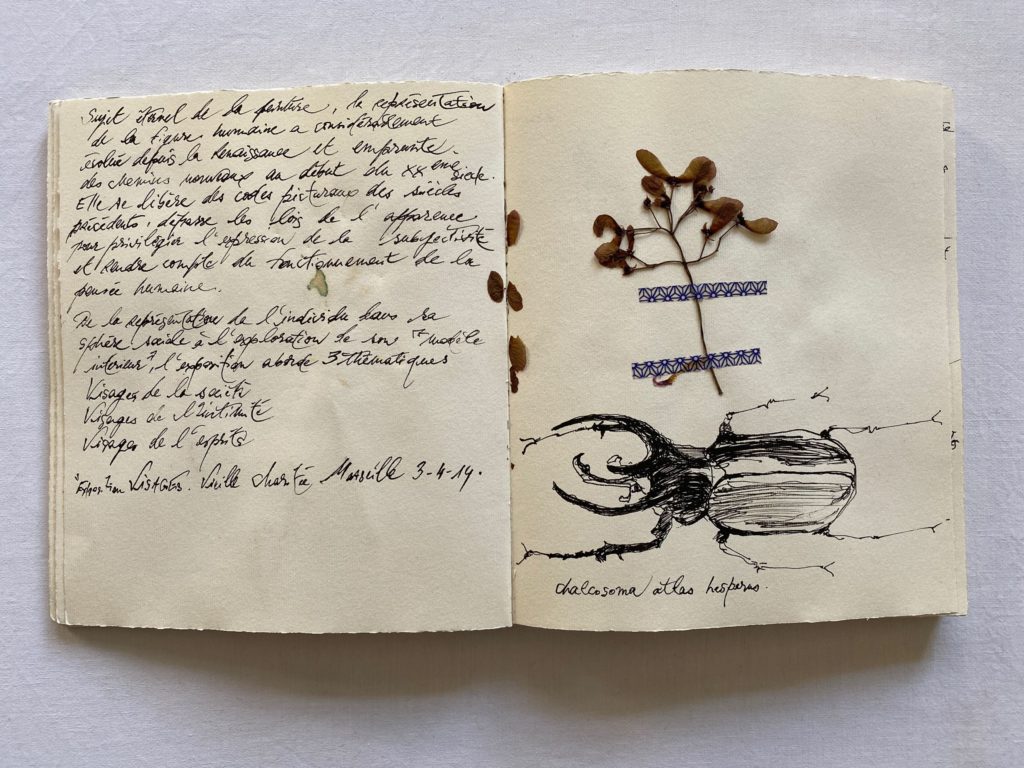 Sujet éternel de la peinture, la représentation
de la figure humaine a considérablement
évolué depuis la Renaissance et emprunté
des chemins nouveaux au début du XXème siècle.
Elle se libère des codes picturaux des siècles
précédents, dépasse les lois de l'apparence
pour privilégier l'expression de la subjectivité
et rendre compte du fonctionnement de la
pensée humaine.
De la représentation de l'individu dans sa
sphère sociale à l'exploration de son "modèle
intérieur", l'exposition aborde 3 thématiques
Visages de la société
Visages de l'intimité
Visages de l'esprit
"Exposition VISAGES. Vieille charité Marseille 3-4-14.
chalcosoma atlas hesperus.